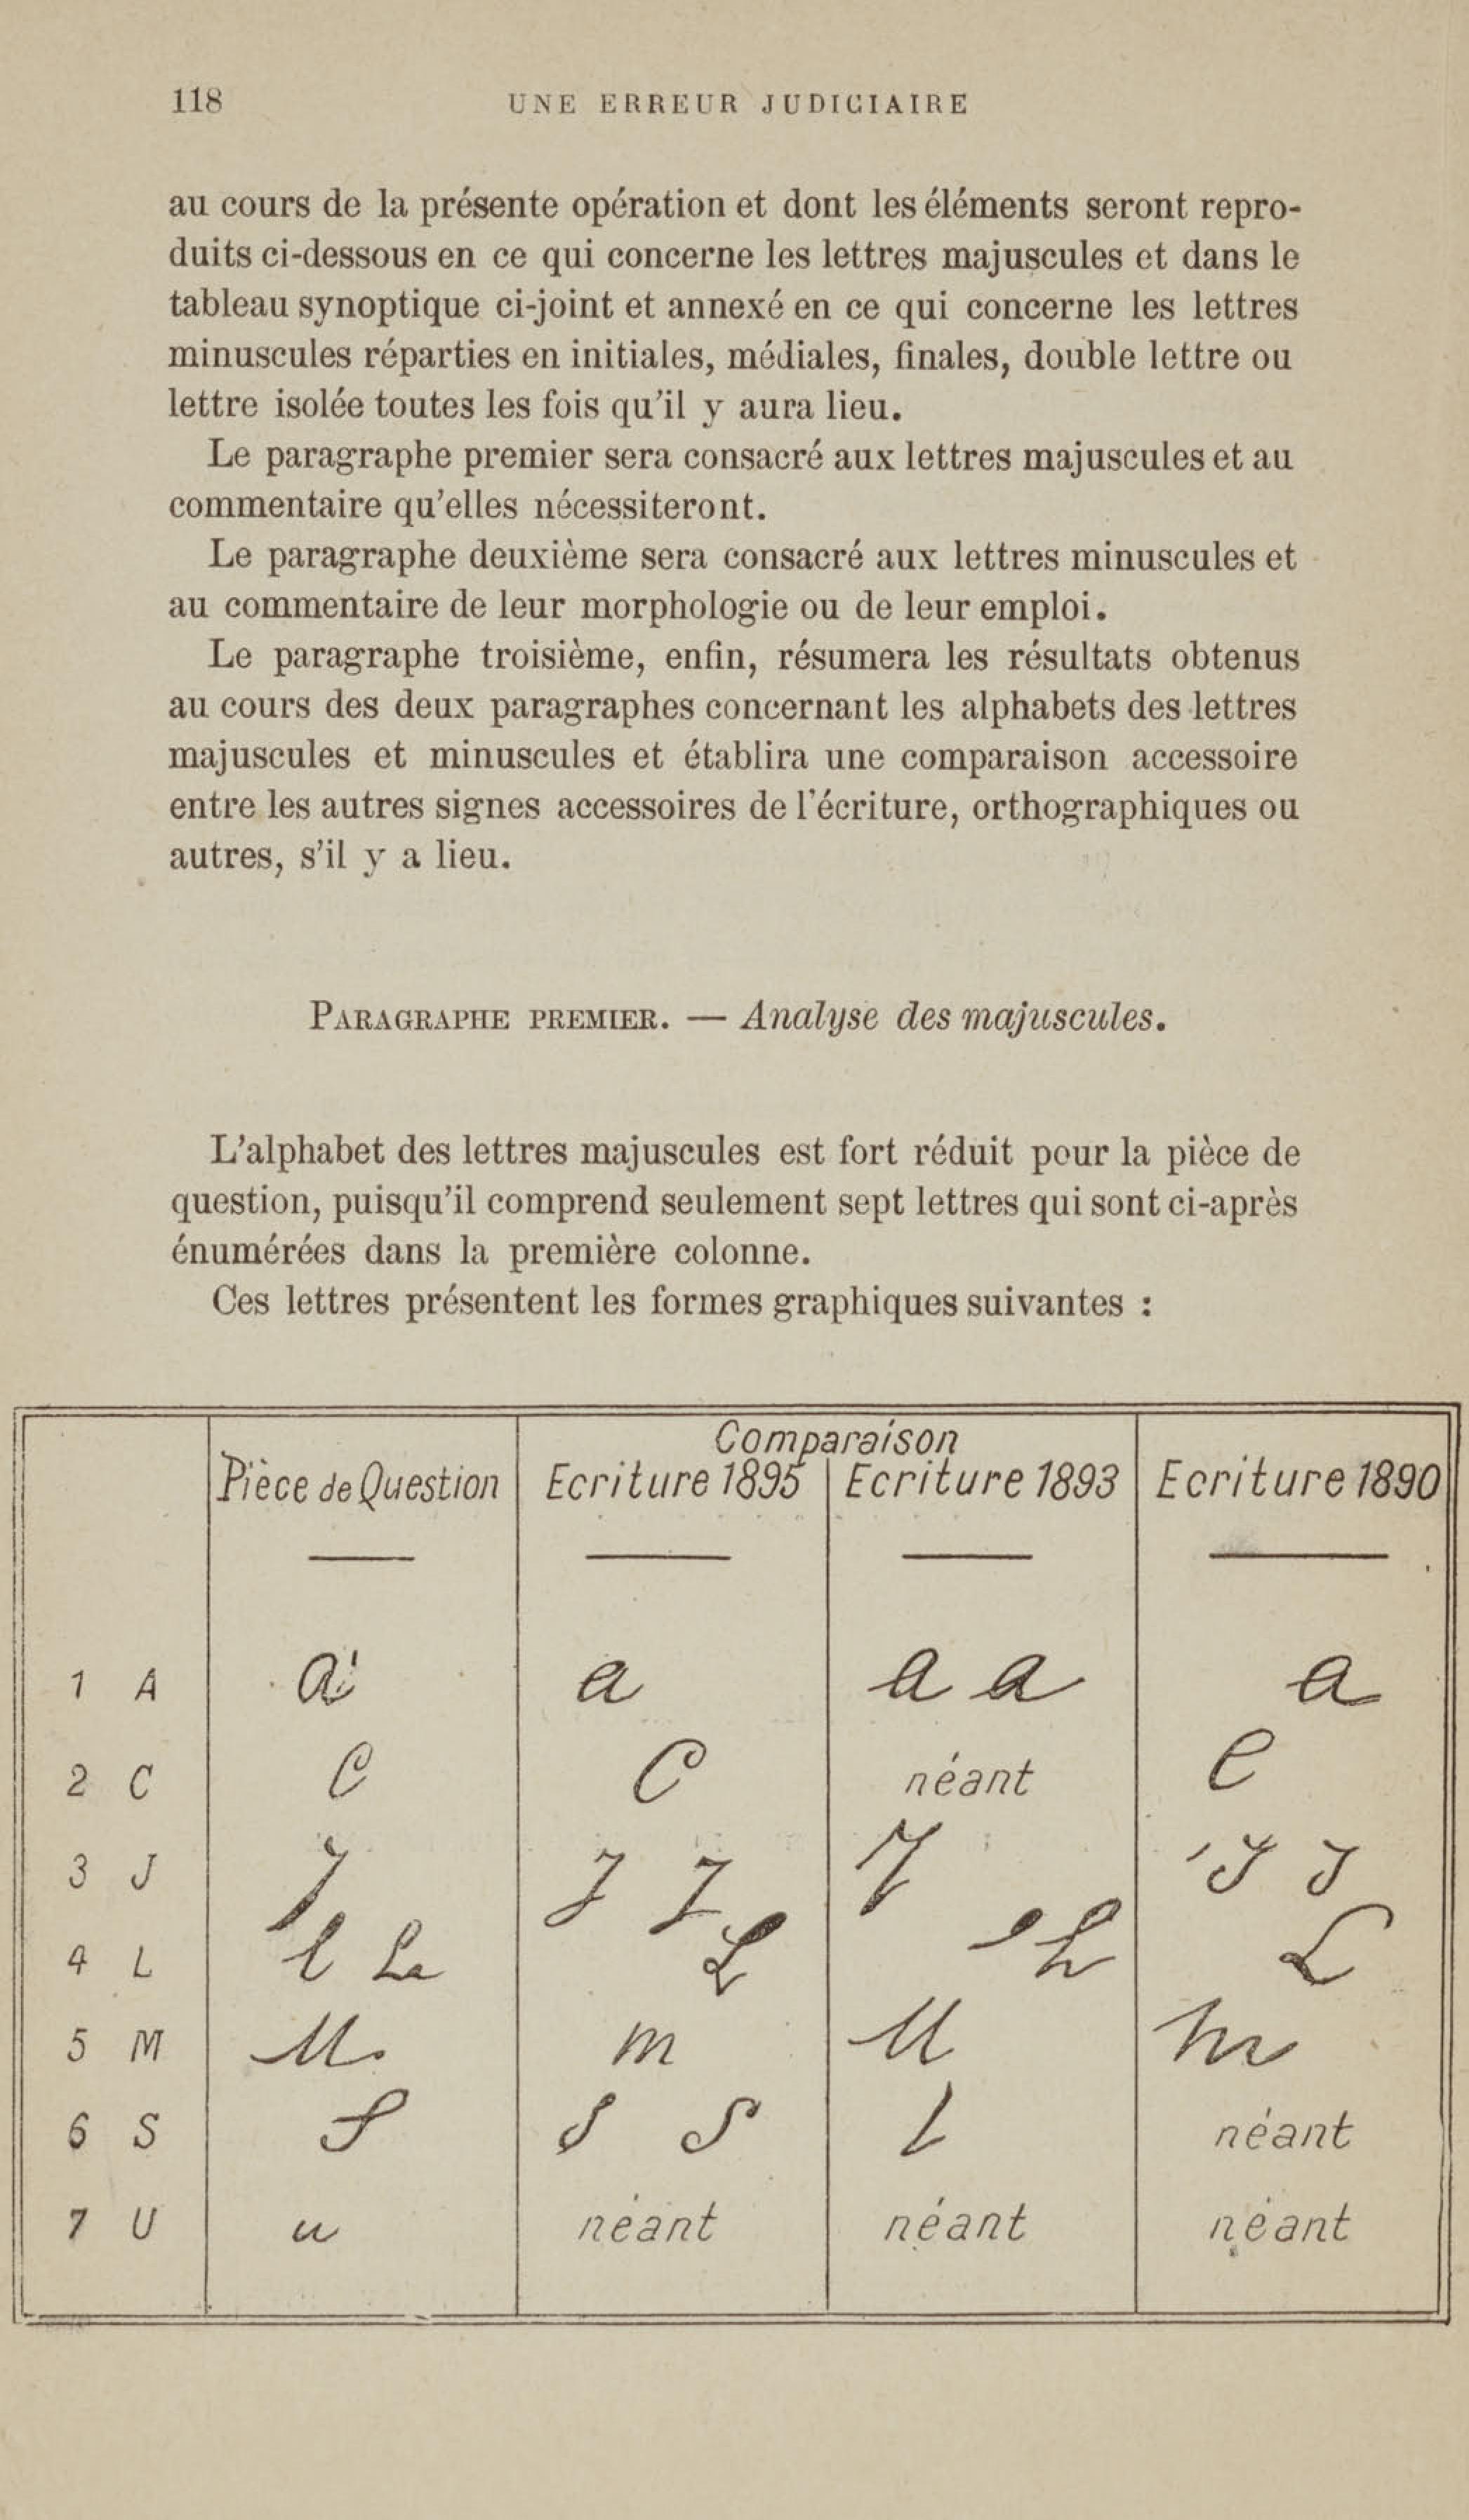 118 UNE ERREUR JUDICIAIRE
au cours de la présente opération et dont les éléments seront repro-
duits ci-dessous en ce qui concerne les lettres majuscules et dans le
tableau synoptique ci-joint et annexé en ce qui concerne les lettres
minuscules réparties en initiales, médiales, finales, double lettre ou
lettre isolée toutes les fois qu'il y aura lieu.
Le paragraphe premier sera consacré aux lettres majuscules et au
commentaire qu'elles nécessiteront.
Le paragraphe deuxième sera consacré aux lettres minuscules et
au commentaire de leur morphologie ou de leur emploi.
Le paragraphe troisième, enfin, résumera les résultats obtenus
au cours des deux paragraphes concernant les alphabets des lettres
majuscules et minuscules et établira une comparaison accessoire
entre les autres signes accessoires de l'écriture, orthographiques ou
autres, s'il y a lieu.
PARAGRAPHE PREMIER. — Analyse des majuscules.
L'alphabet des lettres majuscules est fort réduit pour la pièce de
question, puisqu'il comprend seulement sept lettres qui sont ci-après
énumérées dans la première colonne.
Ces lettres présentent les formes graphiques suivantes :
Comparaison
Pièce de Question Ecriture 1895 Ecriture 1893 Ecriture 1890
1 A a a a a a
2 C C C néant C
3 J J J J J J J
4 L L La L L L
5 M M m M m
6 S S S S néant
7 U u néant néant néant